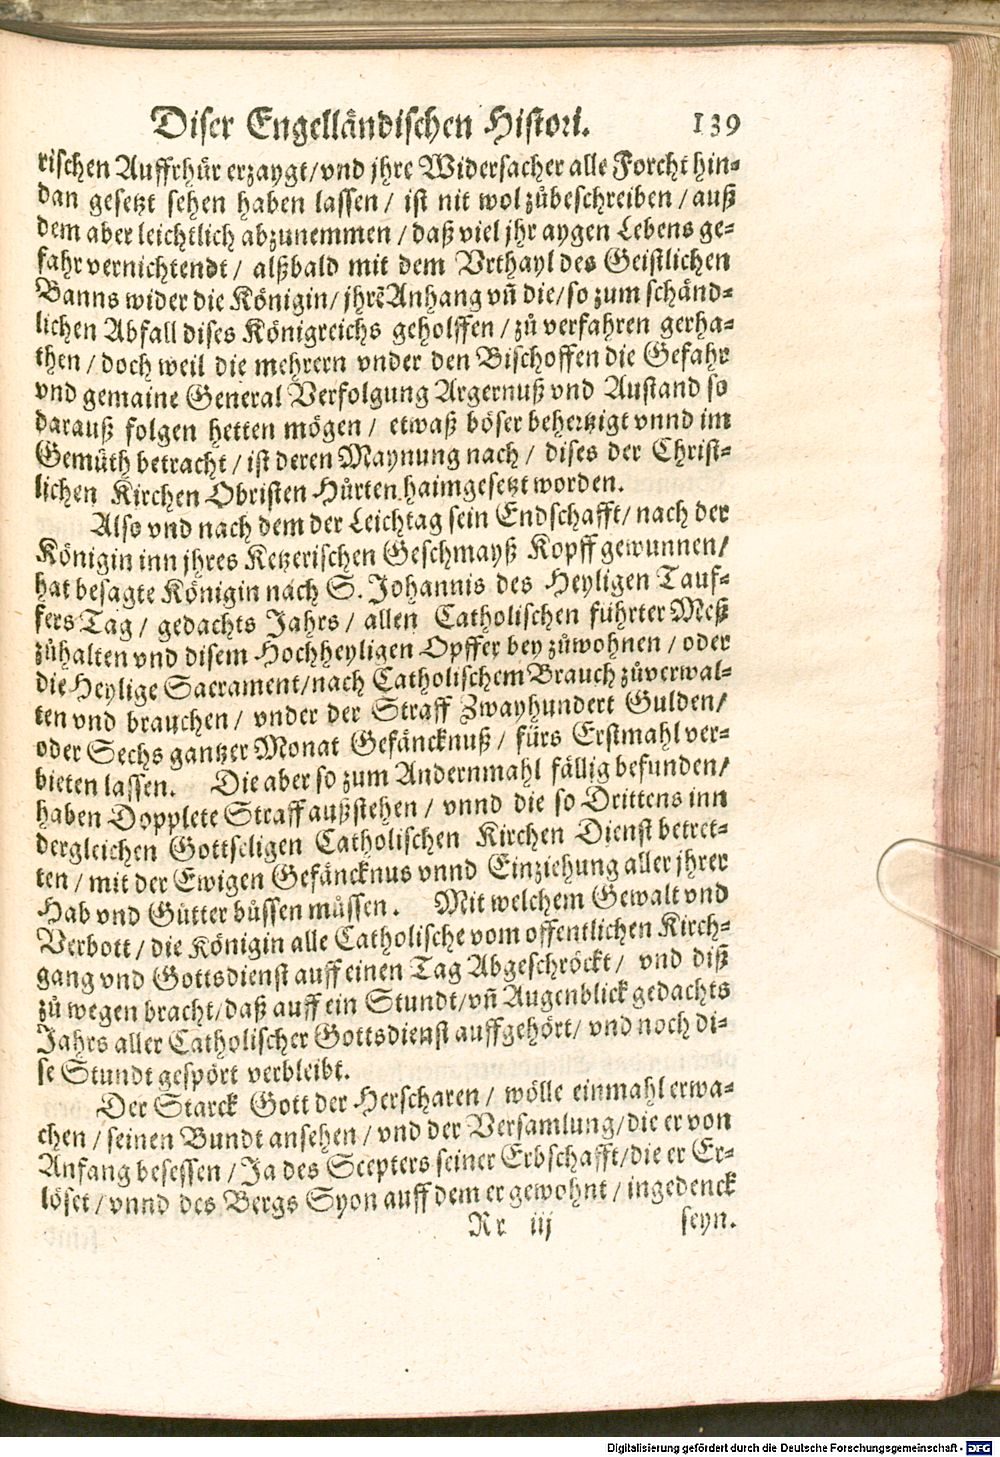 Diser Engelländischen Histori. 139
rischen Auffrhür erzaygt/vnd jhre Widersacher alle Forcht hin⸗
dan gesetzt sehen haben lassen/ ist nit wol zůbeschreiben/auß
dem aber leichtlich abzunemmen/daß viel jhr aygen Lebens ge⸗
fahr vernichtendt/ alßbald mit dem Vrthayl des Geistlichen
Banns wider die Königin/jhrē Anhang vñ die/so zum schänd⸗
lichen Abfall dises Königreichs geholffen/zů verfahren gerha⸗
then/doch weil die mehrern vnder den Bischoffen die Gefahr
vnd gemaine General Verfolgung Argernuß vnd Austand so
darauß folgen hetten mögen/ etwaß böser behertzigt vnnd im
Gemüth betracht/ist deren Maynung nach/ dises der Christ⸗
lichen Kirchen Obristen Hürten haimgesetzt worden.
Also vnd nach dem der Leichtag sein Endschafft/nach der
Königin inn jhres Ketzerischen Geschmayß Kopff gewunnen/
hat besagte Königin nach S. Johannis des Heyligen Tauf⸗
fers Tag/ gedachts Jahrs/ allen Catholischen führter Meß
zůhalten vnd disem Hochheyligen Opffer bey zůwohnen/oder
die Heylige Sacrament/nach Catholischem Brauch zůverwal⸗
ten vnd brauchen/ vnder der Straff Zwayhundert Gulden/
oder Sechs gantzer Monat Gefäncknuß/ fürs Erstmahl ver⸗
bieten lassen. Die aber so zum Andernmahl fällig befunden/
haben Dopplete Straff außstehen/ vnnd die so Drittens inn
dergleichen Gottseligen Catholischen Kirchen Dienst betret⸗
ten/mit der Ewigen Gefäncknus vnnd Einziehung aller jhrer
Hab vnd Gütter büssen müssen. Mit welchem Gewalt vnd
Verbott/die Königin alle Catholische vom offentlichen Kirch⸗
gang vnd Gottsdienst auff einen Tag Abgeschröckt/ vnd diß
zů wegen bracht/daß auff ein Stundt/vñ Augenblick gedachts
Jahrs aller Catholischer Gottsdienst auffgehört/vnd noch di⸗
se Stundt gespört verbleibt.
Der Starck Gott der Herscharen/ wölle einmahl erwa⸗
chen/seinen Bundt ansehen/vnd der Versamlung/die er von
Anfang besessen/Ja des Scepters seiner Erbschafft/die er Er⸗
löset/vnnd des Bergs Syon auff dem er gewohnt/ingedenck
Rr iij seyn.
Digitalisierung gefördert durch die Deutsche Forschungsgemeinschaft - DFG